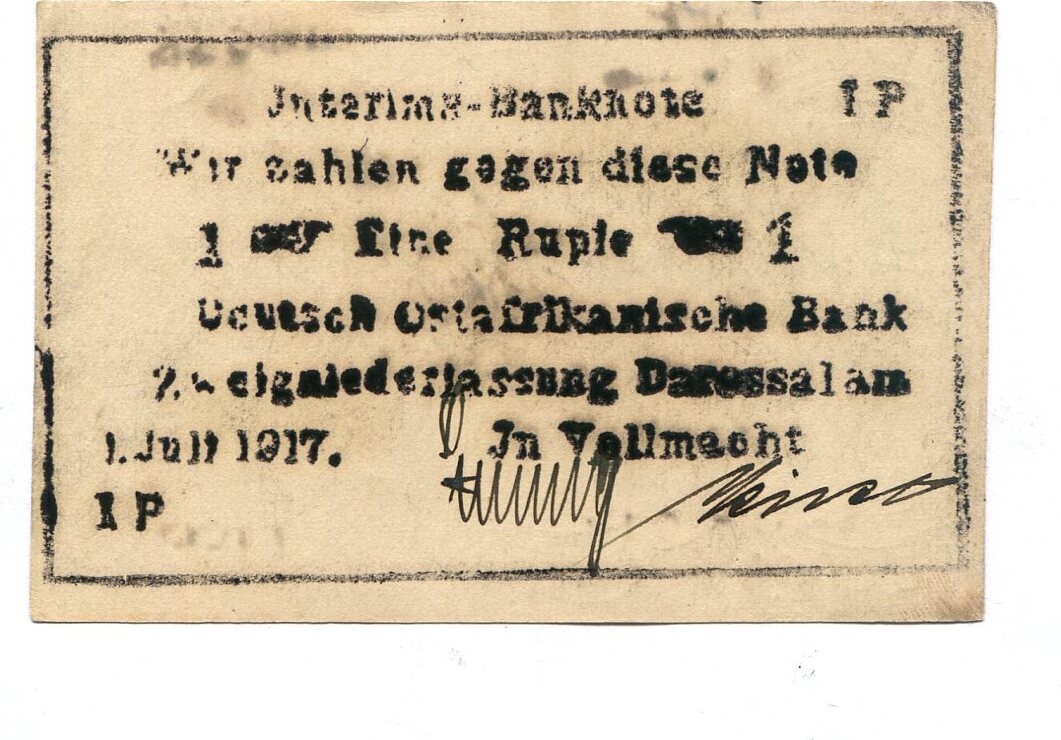 Interims-Banknote 1 P
Wir zahlen gegen diese Note
1 Eine Rupie 1
Deutsch Ostafrikanische Bank
Zweigniederlassung Daressalam
1. Juli 1917. In Vollmacht
1 P